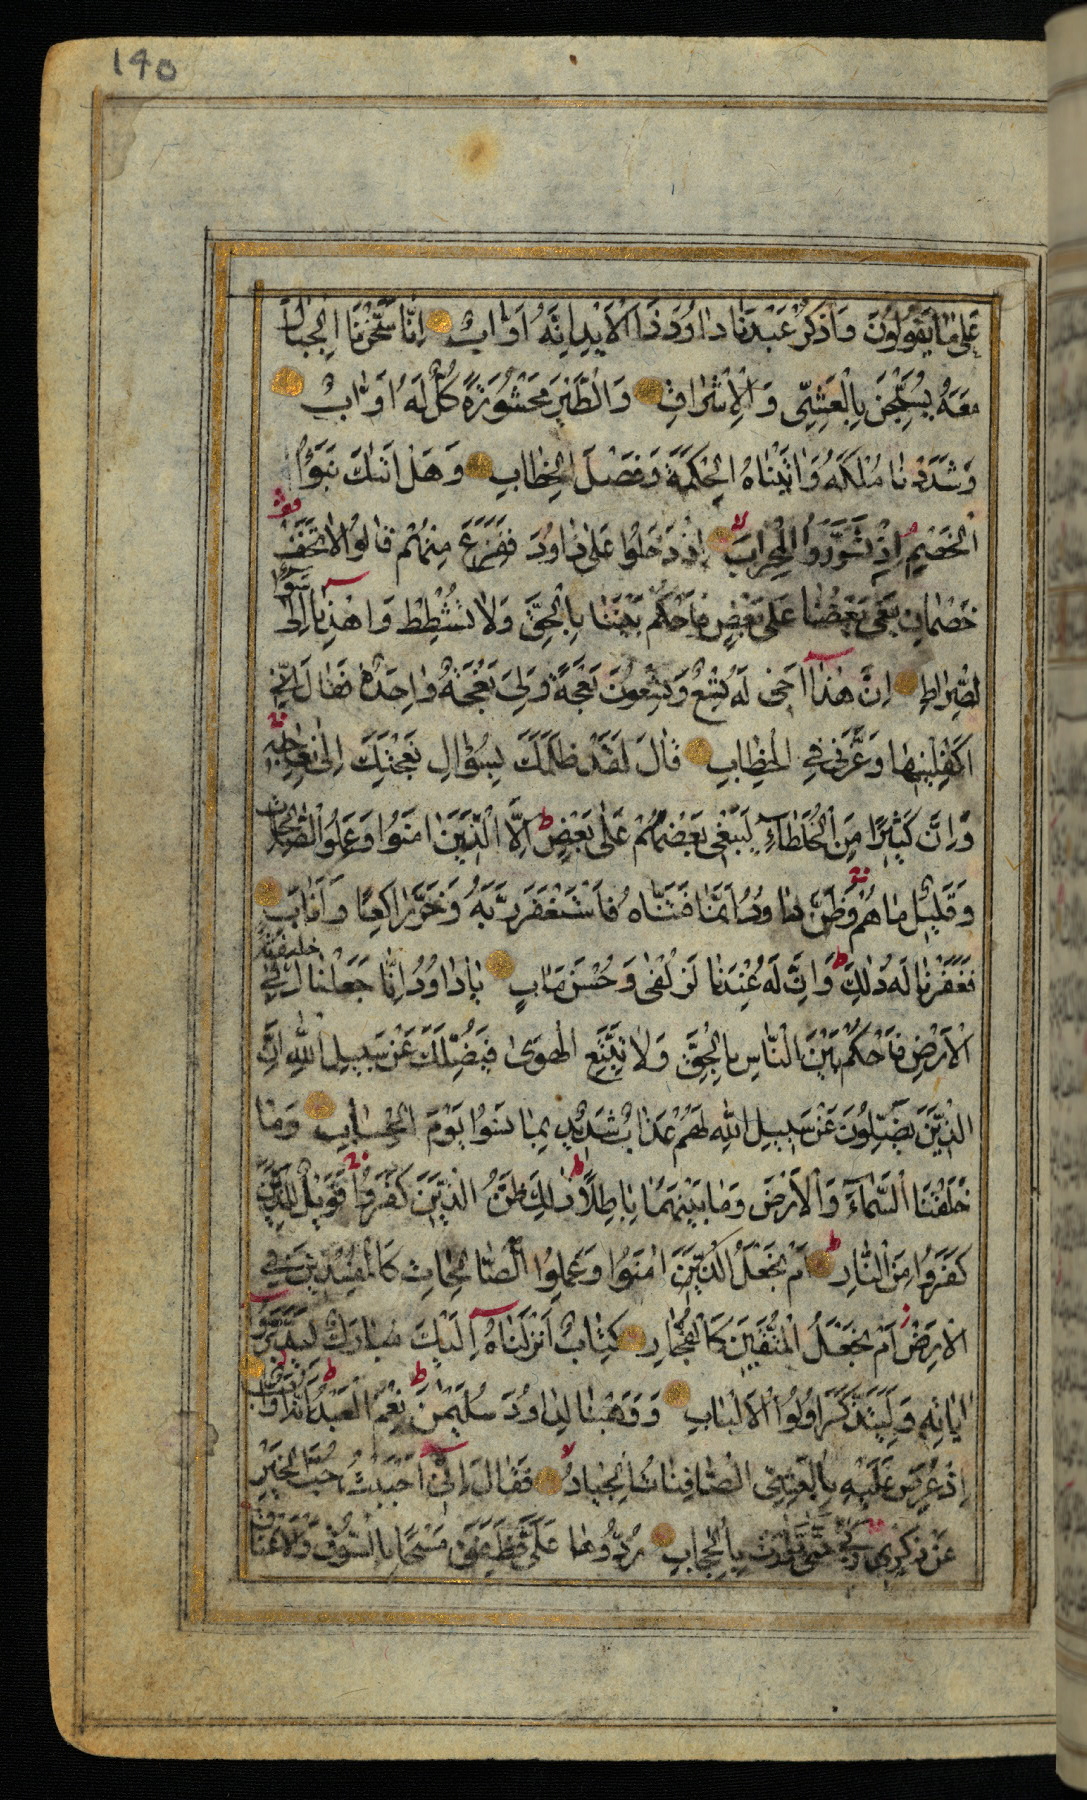 140
عَلَىٰ مَا يَقُولُونَ وَاذْكُرْ عَبْدَنَا دَاوُدَ ذَا الْأَيْدِ إِنَّهُ أَوَّابٌ إِنَّا سَخَّرْنَا الْجِبَالَ
مَعَهُ يُسَبِّحْنَ بِالْعَشِيِّ وَالْإِشْرَاقِ وَالطَّيْرَ مَحْشُورَةً كُلٌّ لَهُ أَوَّابٌ
وَشَدَدْنَا مُلْكَهُ وَآتَيْنَاهُ الْحِكْمَةَ وَفَصْلَ الْخِطَابِ وَهَلْ أَتٰىكَ نَبَؤُا
الْخَصْمِ إِذْ تَسَوَّرُوا الْمِحْرَابَ إِذْ دَخَلُوا عَلَىٰ دَاوُدَ فَفَزِعَ مِنْهُمْ قَالُوا لَا تَخَفْ
خَصْمَانِ بَغَىٰ بَعْضُنَا عَلَىٰ بَعْضٍ فَاحْكُمْ بَيْنَنَا بِالْحَقِّ وَلَا تُشْطِطْ وَاهْدِنَا إِلَىٰ سَوَاءِ
الصِّرَاطِ إِنَّ هَٰذَا أَخِي لَهُ تِسْعٌ وَتِسْعُونَ نَعْجَةً وَلِيَ نَعْجَةٌ وَاحِدَةٌ فَقَالَ
أَكْفِلْنِيهَا وَعَزَّنِي فِي الْخِطَابِ قَالَ لَقَدْ ظَلَمَكَ بِسُؤَالِ نَعْجَتِكَ إِلَىٰ نِعَاجِهِ
وَإِنَّ كَثِيرًا مِنَ الْخُلَطَاءِ لَيَبْغِي بَعْضُهُمْ عَلَىٰ بَعْضٍ إِلَّا الَّذِينَ آمَنُوا وَعَمِلُوا الصَّالِحَاتِ
وَقَلِيلٌ مَا هُمْ وَظَنَّ دَاوُدُ أَنَّمَا فَتَنَّاهُ فَاسْتَغْفَرَ رَبَّهُ وَخَرَّ رَاكِعًا وَأَنَابَ
فَغَفَرْنَا لَهُ ذَٰلِكَ وَإِنَّ لَهُ عِنْدَنَا لَزُلْفَىٰ وَحُسْنَ مَآبٍ يَا دَاوُدُ إِنَّا جَعَلْنَاكَ خَلِيفَةً فِي
الْأَرْضِ فَاحْكُمْ بَيْنَ النَّاسِ بِالْحَقِّ وَلَا تَتَّبِعِ الْهَوَىٰ فَيُضِلَّكَ عَنْ سَبِيلِ اللَّهِ إِنَّ
الَّذِينَ يَضِلُّونَ عَنْ سَبِيلِ اللَّهِ لَهُمْ عَذَابٌ شَدِيدٌ بِمَا نَسُوا يَوْمَ الْحِسَابِ وَمَا
خَلَقْنَا السَّمَاءَ وَالْأَرْضَ وَمَا بَيْنَهُمَا بَاطِلًا ذَٰلِكَ ظَنُّ الَّذِينَ كَفَرُوا فَوَيْلٌ لِلَّذِينَ
كَفَرُوا مِنَ النَّارِ أَمْ نَجْعَلُ الَّذِينَ آمَنُوا وَعَمِلُوا الصَّالِحَاتِ كَالْمُفْسِدِينَ فِي
الْأَرْضِ أَمْ نَجْعَلُ الْمُتَّقِينَ كَالْفُجَّارِ كِتَابٌ أَنْزَلْنَاهُ إِلَيْكَ مُبَارَكٌ لِيَدَّبَّرُوا
آيَاتِهِ وَلِيَتَذَكَّرَ أُولُوا الْأَلْبَابِ وَوَهَبْنَا لِدَاوُدَ سُلَيْمٰنَ نِعْمَ الْعَبْدُ إِنَّهُ أَوَّابٌ
إِذْ عُرِضَ عَلَيْهِ بِالْعَشِيِّ الصَّافِنَاتُ الْجِيَادُ فَقَالَ إِنِّي أَحْبَبْتُ حُبَّ الْخَيْرِ
عَنْ ذِكْرِ رَبِّي حَتَّىٰ تَوَارَتْ بِالْحِجَابِ رُدُّوهَا عَلَيَّ فَطَفِقَ مَسْحًا بِالسُّوقِ وَالْأَعْنَاقِ